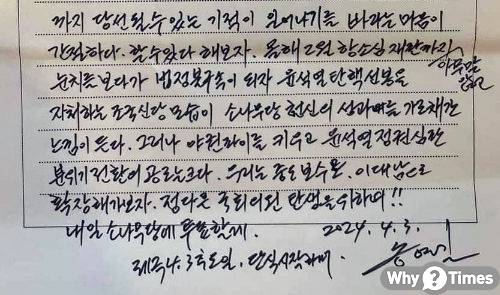 까지 당선될수있는 기적이 일어나기를 바라는 마음이
간절하다. 할수있다 해보자. 올해 2월 항소심 재판까지
아무말 않고
눈치를 보다가 법정불구속이 되자 윤석열 탄핵 선봉을
자처하는 조국신당 모습이 소나무당 헌신의 성과를 가로채간
느낌이 든다. 그러나 야권파이를 키우고 윤석열 정권심판
분위기 전환에 공로는 크다. 우리는 중도보수로. 이대남으로
확장해가보자. 정다은 국회의원 탄생을 위하여!!
내일 소나무당에 투표할게.
2024. 4. 3.
제주 4.3 추도일, 단식시작하며
송영길
Why?Times